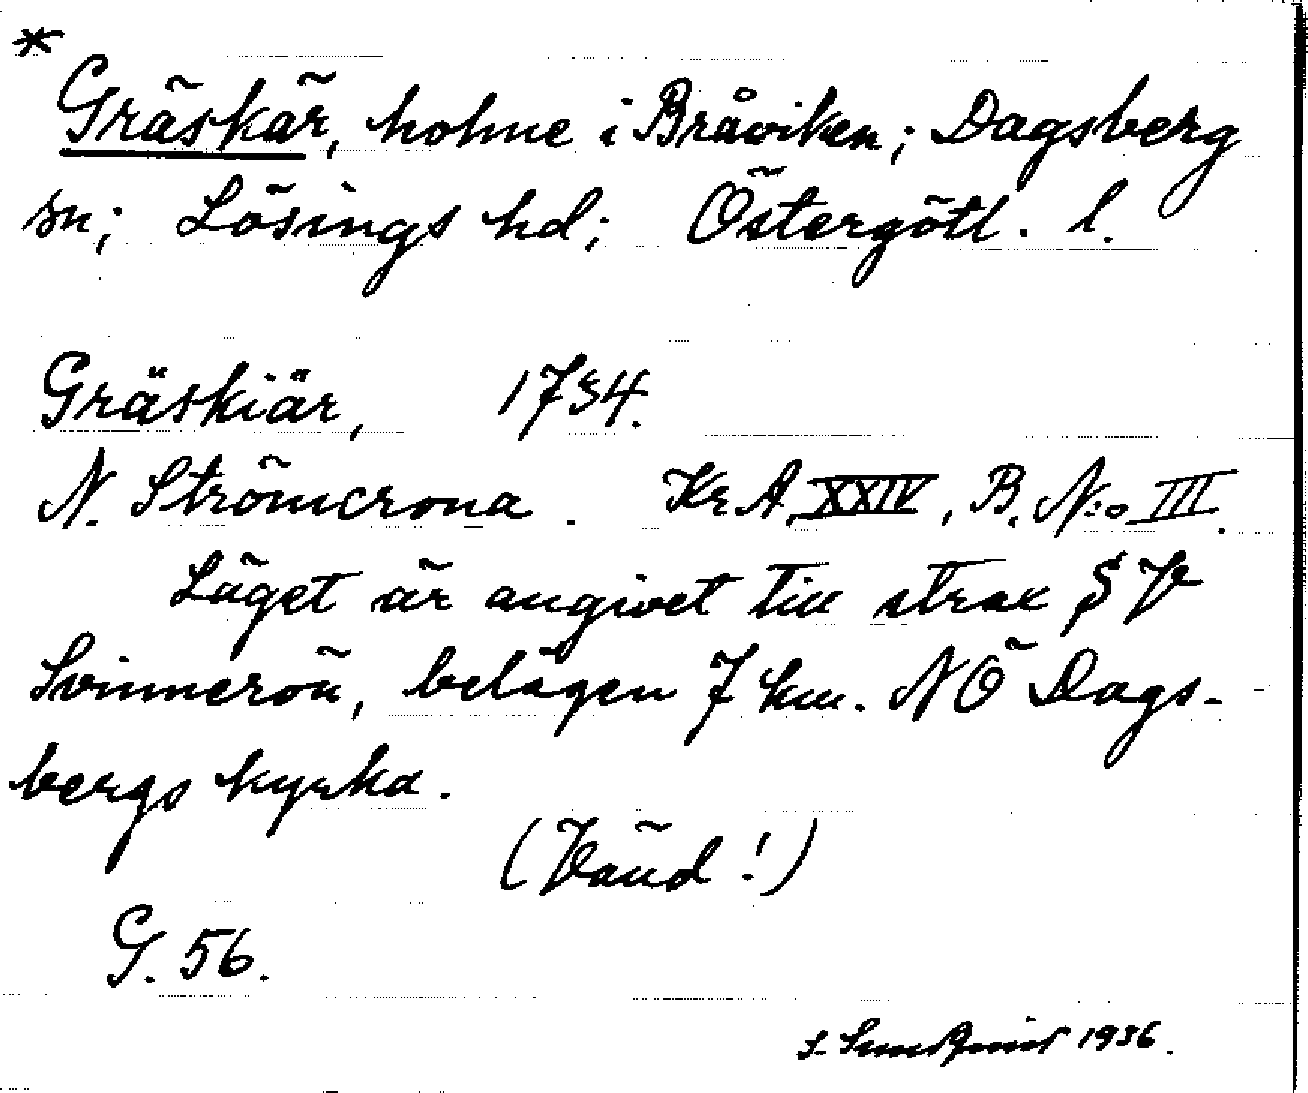 *
Gräskär, holme i Bråviken; Dagsberg
sn; Lösings hd; Östergötl. l.
Gräskiär, 1734.
N. Strömcrona. Kr.A. XXIV, B. N:o III.
Läget är angivet till strax SV
Svinnerön, belägen 7 km. NÖ Dags-
bergs kyrka.
(Vänd!)
G. 56.
Sundqvist 1936.